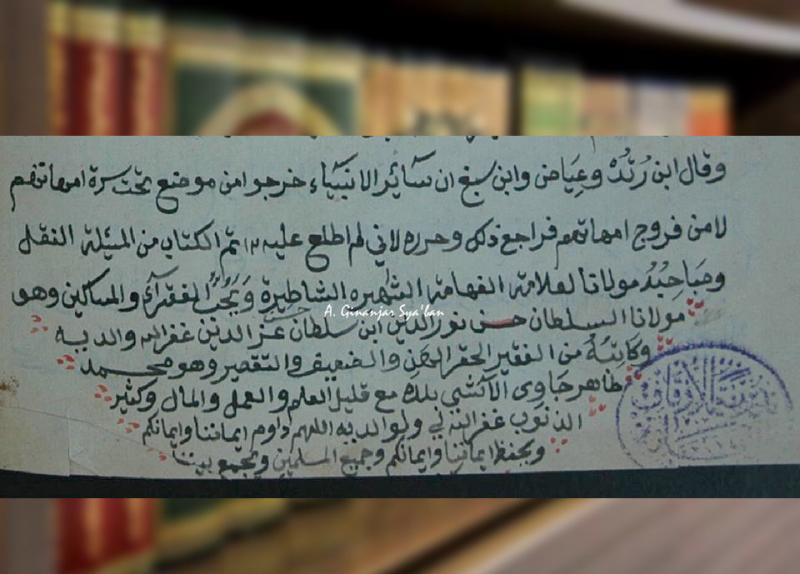 وقال ابن رُشْدٌ وعِيَاض وابن سبع ان سَائر الانبيَاء خرجوا من موضع تحت سرة امهاتهم
لا من فروج امهاتهم فراجع ذلك وحرره لاني لم اطلع عليه تم الكتاب من المسئلة النقل
وصَاحِبُهُ مولانا العلامة الفهامة الشهيره الشاطيرة وَيُحِبُّ الفقرآء والمساكين وهو
مولانا السلطان حسن نور الدين ابن سلطان عز الدين غفر الله والديه
وكَاتِبُهُ من الفقير الحقر والضعيف والتقصير وهو محمد
طاهر جاوى الآتشى بلده مع قليل العلم والعمل والمال وكثير
الذنوب غفر الله لي ولوالديه اللهم داوم ايماننا وايمانكم
ويحفظ ايماننا وايمانكم وجميع المسلمين ويجمع بيننا
A. Ginanjar Sya'ban